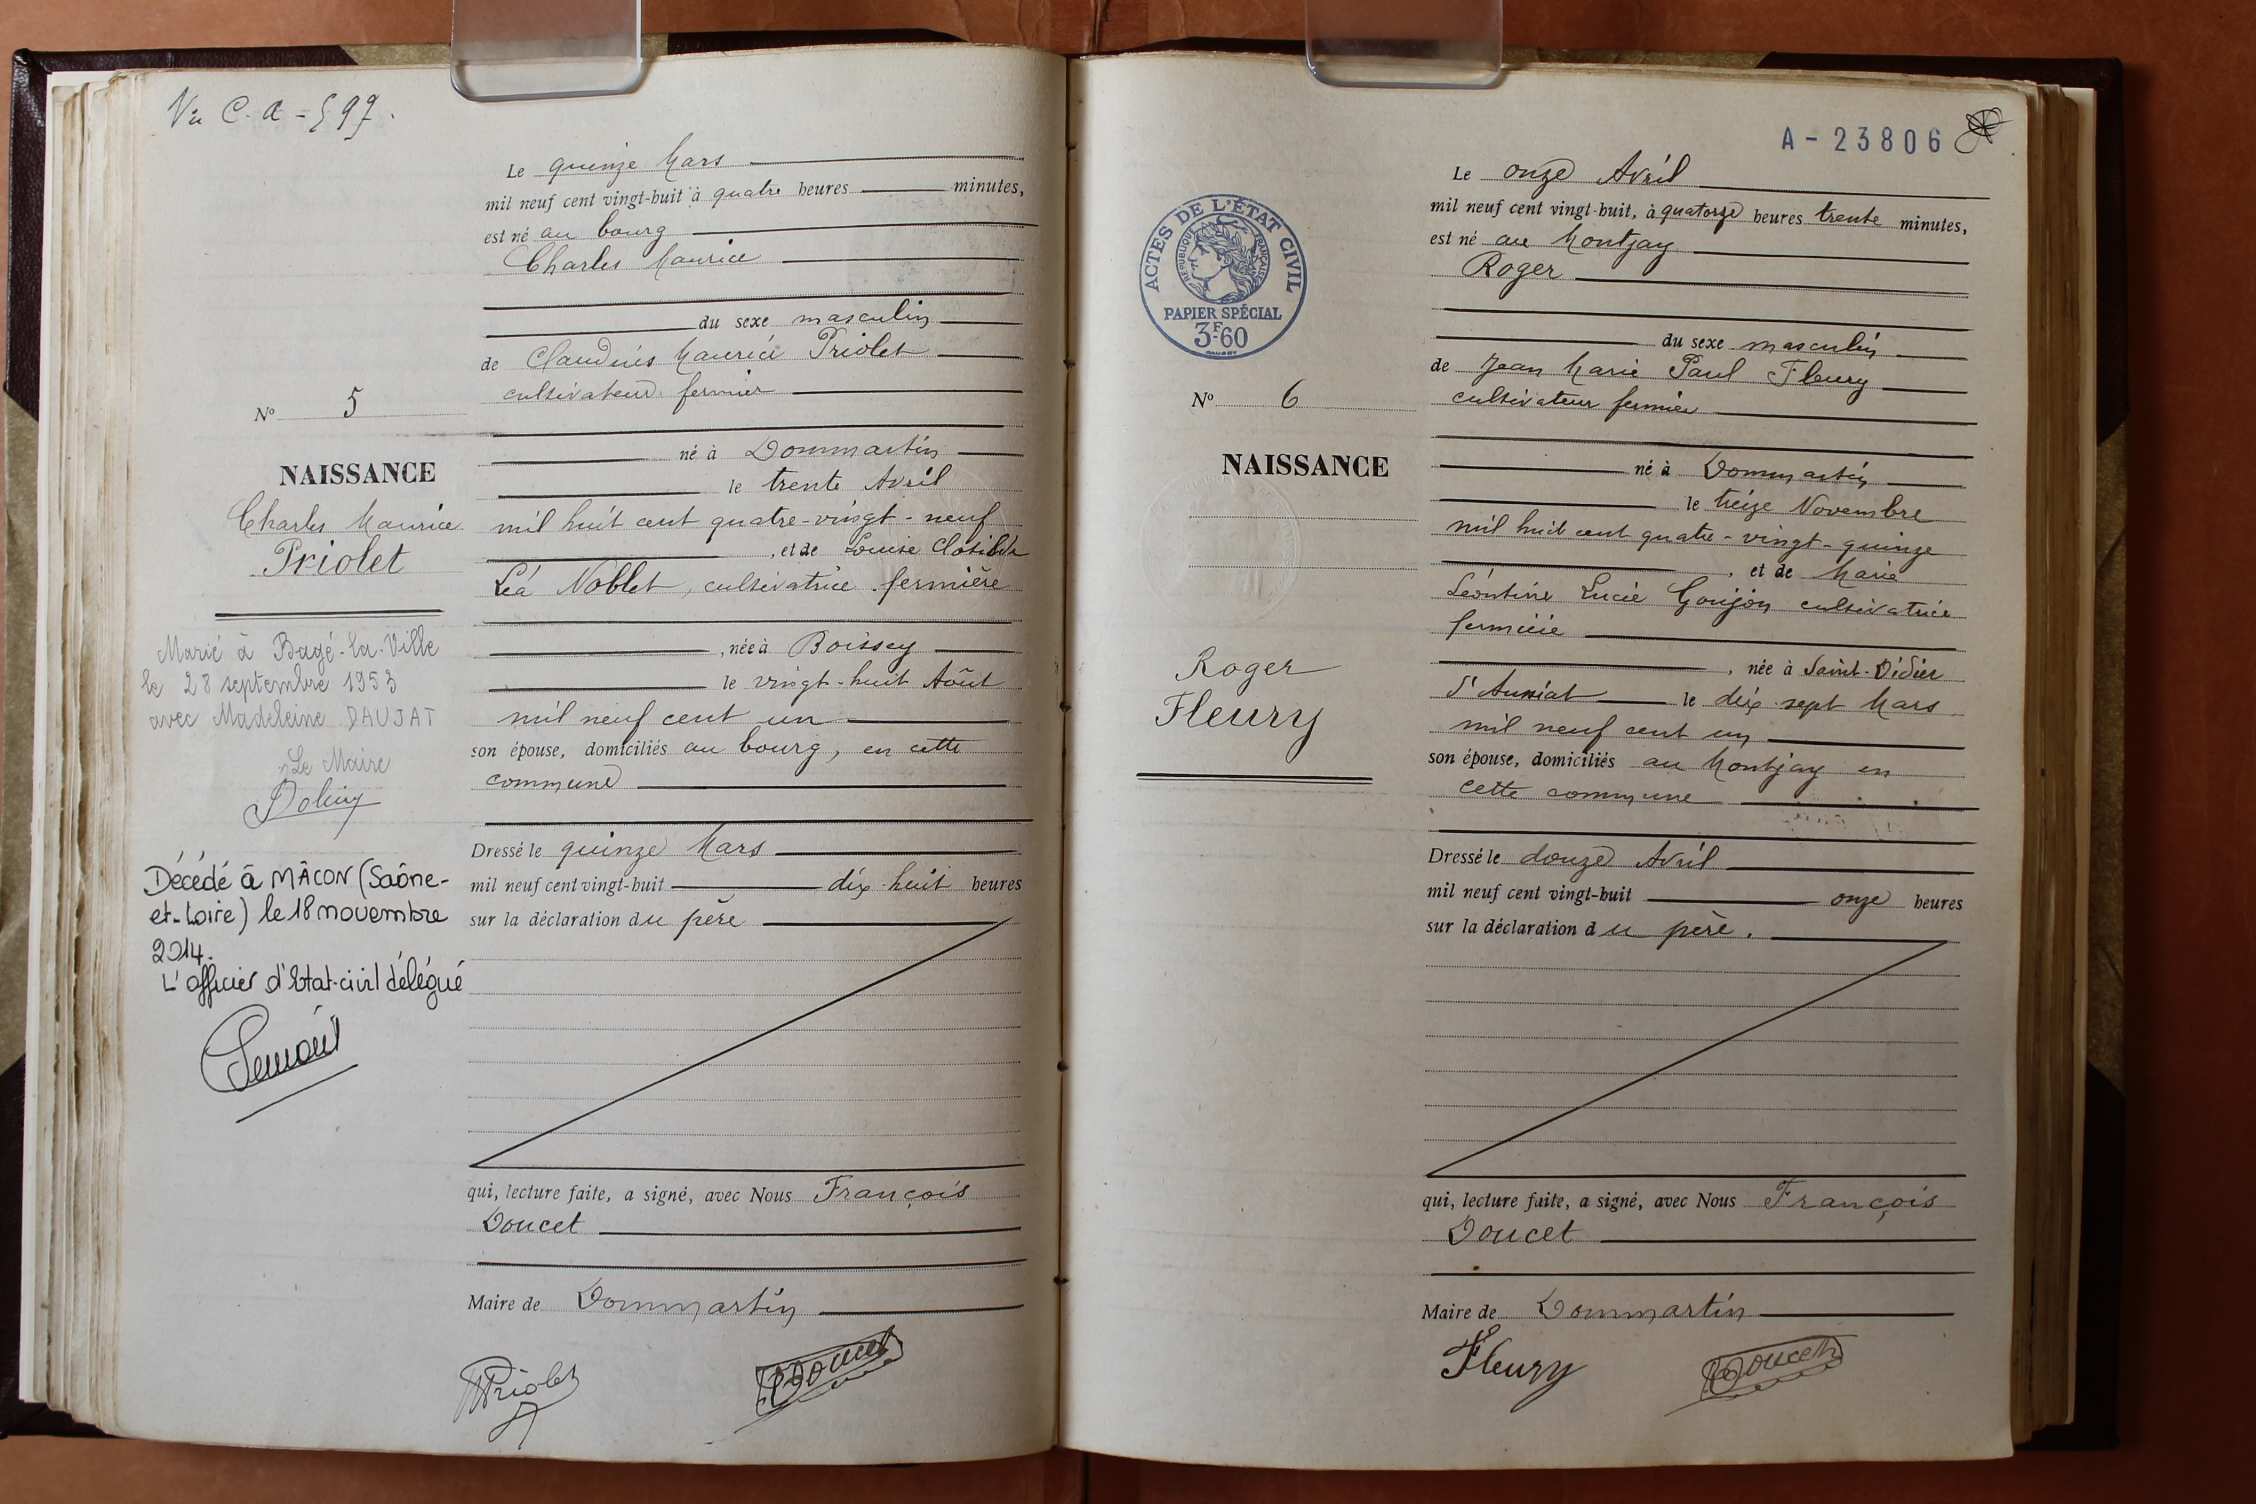 Vu C. A - 597.
Le quinze Mars
mil neuf cent vingt-huit à quatre heures minutes,
est né au bourg
Charles Maurice
du sexe masculin
de Claudius Maurice Priolet
cultivateur fermier
né à Dommartin
le trente Avril
mil huit cent quatre-vingt-neuf
, et de Louise Clotilde
Léa Noblet, cultivatrice fermière
, née à Boissey
le vingt-huit Août
mil neuf cent un
son épouse, domiciliés au bourg, en cette
commune
Dressé le quinze Mars
mil neuf cent vingt-huit dix-huit heures
sur la déclaration du père
qui, lecture faite, a signé, avec Nous François
Doucet
Maire de Dommartin
Priolet
Doucet
No 5
NAISSANCE
Charles Maurice
Priolet
Marié à Bagé-la-Ville
le 28 septembre 1953
avec Madeleine DAUJAT
Le Maire
Décédé à MÂCON (Saône-
et-Loire) le 18 novembre
2014.
L'officier d'Etat-civil délégué
A-23806
Le onze Avril
mil neuf cent vingt-huit, à quatorze heures trente minutes,
est né au Montjay
Roger
du sexe masculin
de Jean Marie Paul Fleury
cultivateur fermier
né à Dommartin
le treize Novembre
mil huit cent quatre-vingt-quinze
, et de Marie
Léontine Lucie Goujon cultivatrice
fermière
, née à Saint-Didier
d'Aussiat le dix sept Mars
mil neuf cent un
son épouse, domiciliés au Montjay en
cette commune
Dressé le douze Avril
mil neuf cent vingt-huit onze heures
sur la déclaration du père.
qui, lecture faite, a signé, avec Nous François
Doucet
Maire de Dommartin
Fleury
Doucet
ACTES DE L'ÉTAT CIVIL
RÉPUBLIQUE FRANÇAISE
PAPIER SPÉCIAL
3F60
No 6
NAISSANCE
Roger
Fleury